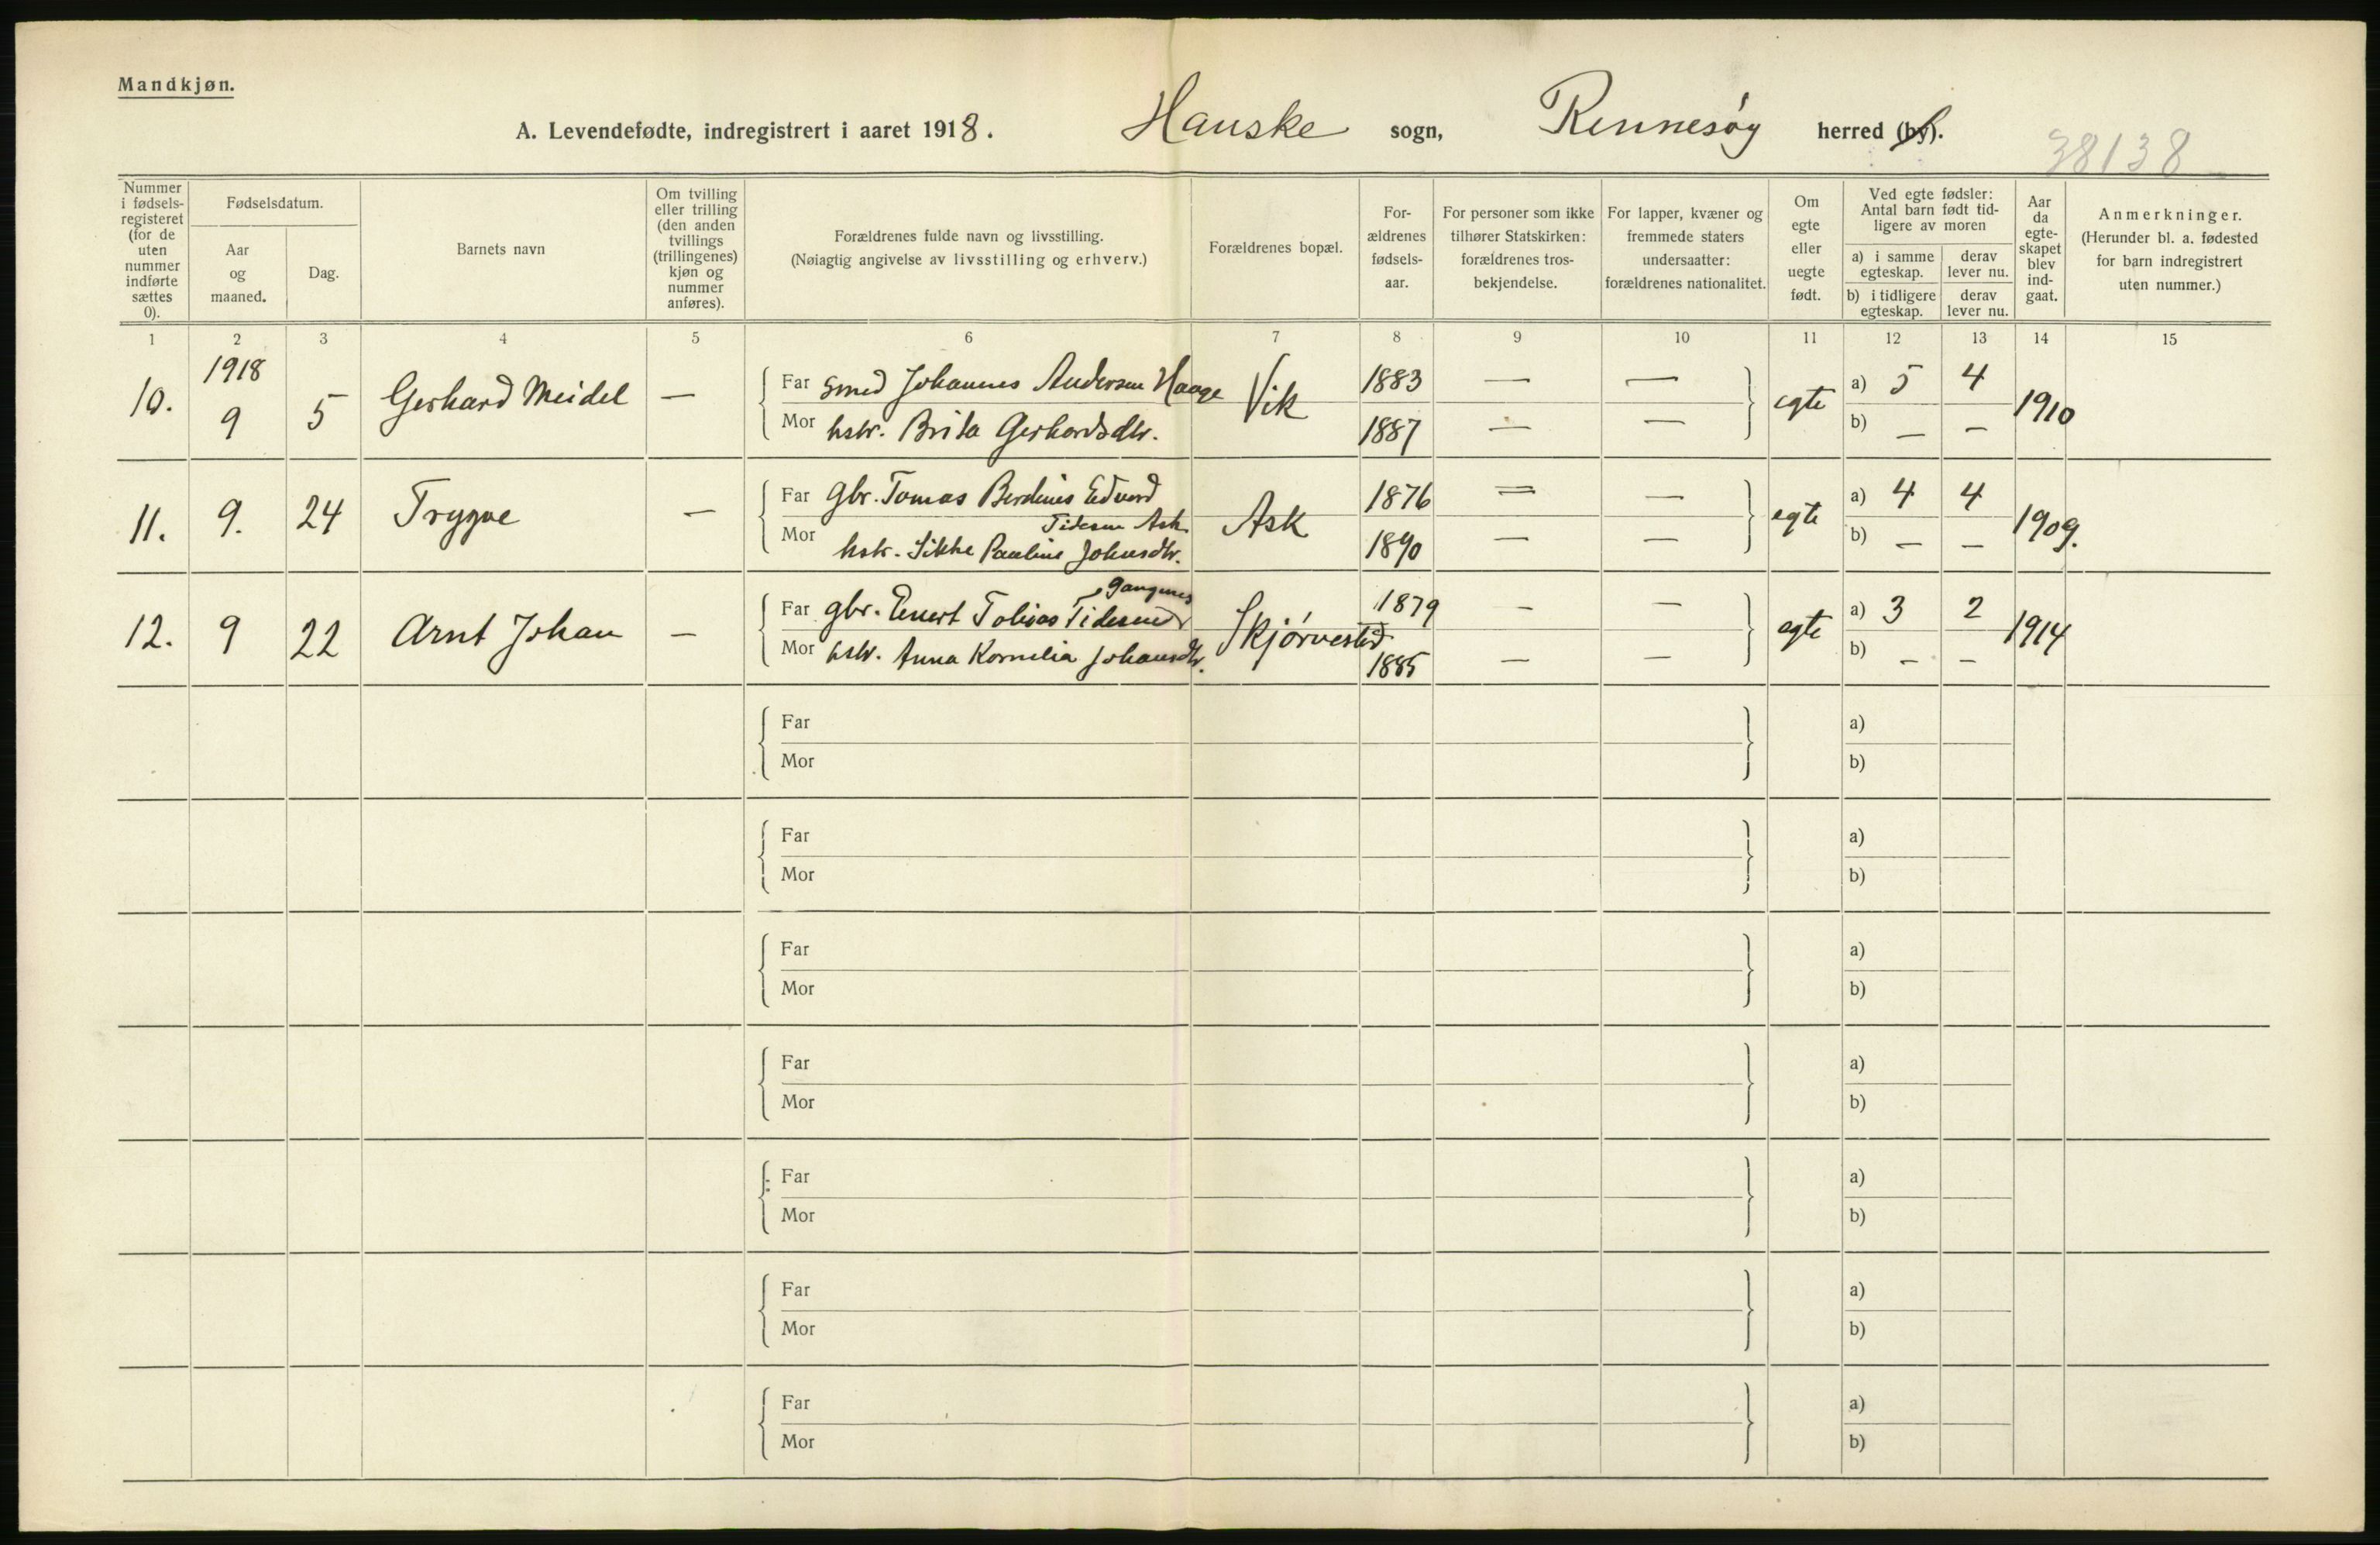 Mandkjøn.
A. Levendefødte, indregistrert i aaret 1918. Hauske sogn, Rennesøy herred (by).
38138
Nummer i fødselsregisteret (for de uten nummer indførte sættes 0).
Fødselsdatum.
Aar og maaned.
Dag.
Barnets navn
Om tvilling eller trilling (den anden tvillings (trillingenes) kjøn og nummer anføres).
Forældrenes fulde navn og livsstilling.
(Nøiagtig angivelse av livsstilling og erhverv.)
Forældrenes bopæl.
Forældrenes fødselsaar.
For personer som ikke tilhører Statskirken: forældrenes trosbekjendelse.
For lapper, kvæner og fremmede staters undersaatter: forældrenes nationalitet.
Om egte eller uegte født.
Ved egte fødsler: Antal barn født tidligere av moren
a) i samme egteskap. derav lever nu.
b) i tidligere egteskap. derav lever nu.
Aar da egteskapet blev indgaat.
Anmerkninger.
(Herunder bl. a. fødested for barn indregistrert uten nummer.)
1 2 3 4 5 6 7 8 9 10 11 12 13 14 15
1918
10. 9 5 Gerhard Meidel — Far smed Johannes Andersen Hauge Vik 1883 — — egte a) 5 4 1910
Mor hstr. Brita Gerhardsdtr. 1887 — — b) — —
11. 9. 24 Trygve — Far gbr. Tomas Berdines Edvard Ask 1876 = — egte a) 4 4 1909.
Tidesen Ask
Mor hstr. Sikke Pauline Johnsdtr. 1890 — — b) — —
Gangenes
12. 9 22 Arnt Johan — Far gbr. Enert Tobias Tidesen Skjørvestad 1879 — — egte a) 3 2 1914
Mor hstr. Anna Kornelia Johansdtr. 1885 — — b) — —
Far a)
Mor b)
Far a)
Mor b)
Far a)
Mor b)
Far a)
Mor b)
Far a)
Mor b)
Far a)
Mor b)
Far a)
Mor b)